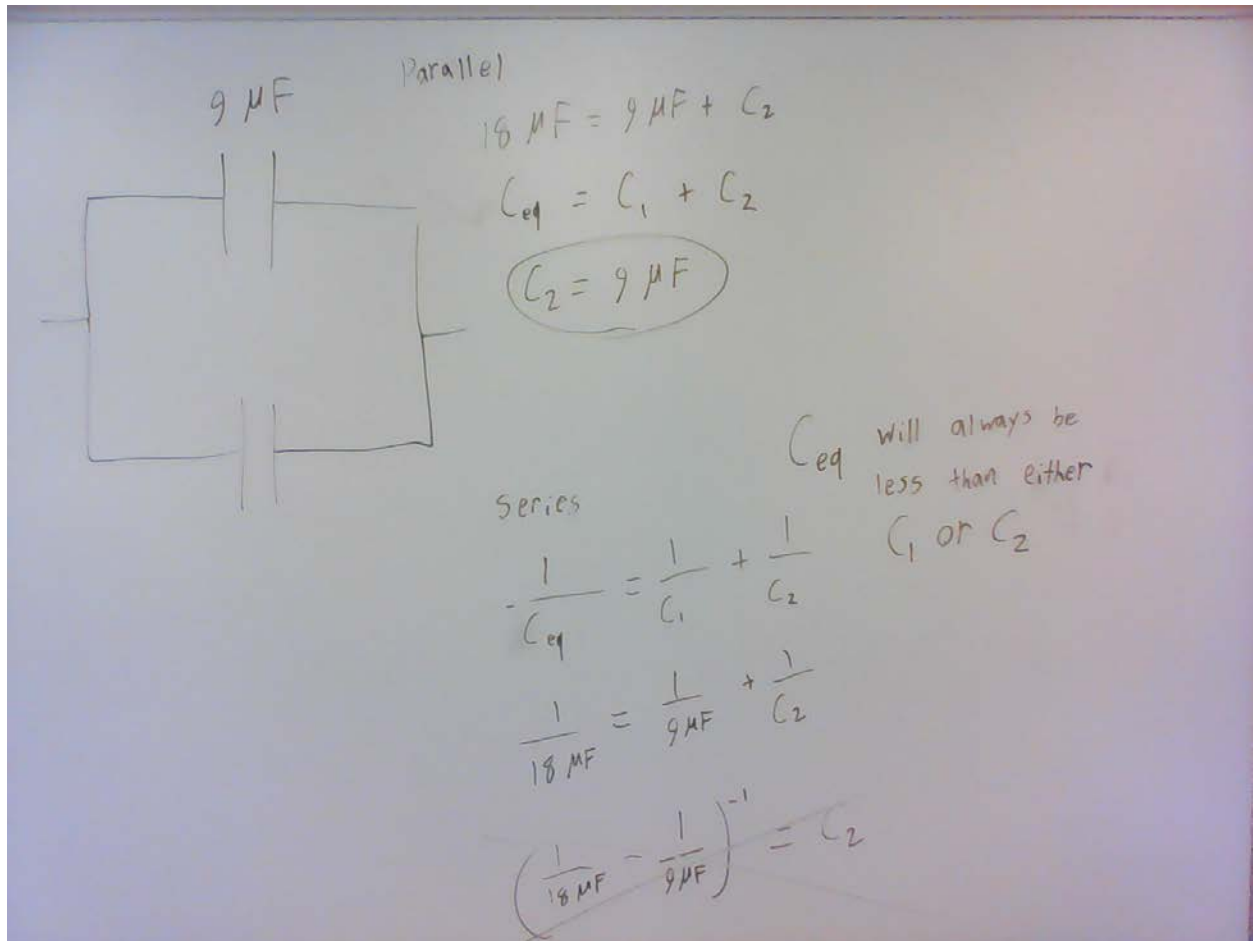 9 μF
Parallel
18 μF = 9 μF + C₂
C_eq = C₁ + C₂
C₂ = 9 μF
C_eq will always be
less than either
C₁ or C₂
Series
1/C_eq = 1/C₁ + 1/C₂
1/18 μF = 1/9 μF + 1/C₂
(1/18 μF − 1/9 μF)⁻¹ = C₂